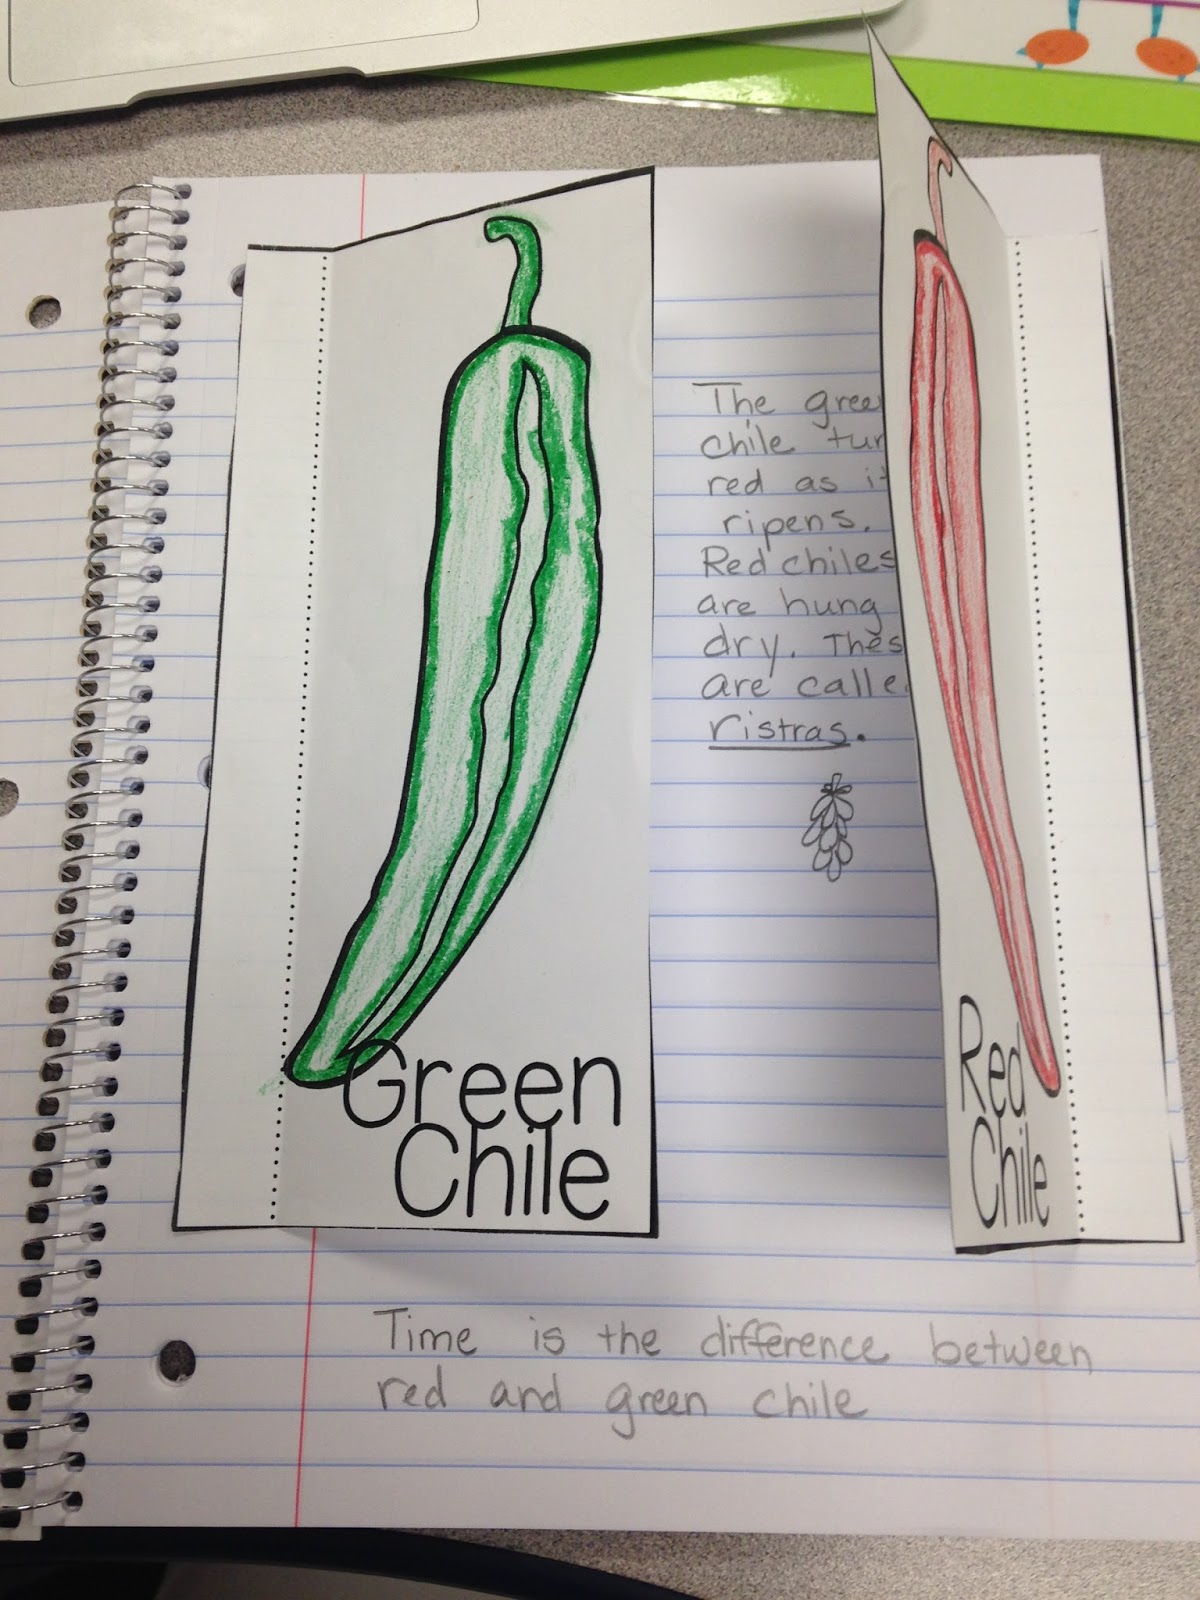 The gree
chile tur
red as it
ripens.
Red chiles
are hung
dry. Thes
are calle
ristras.
Green
Chile
Red
Chile
Time is the difference between
red and green chile